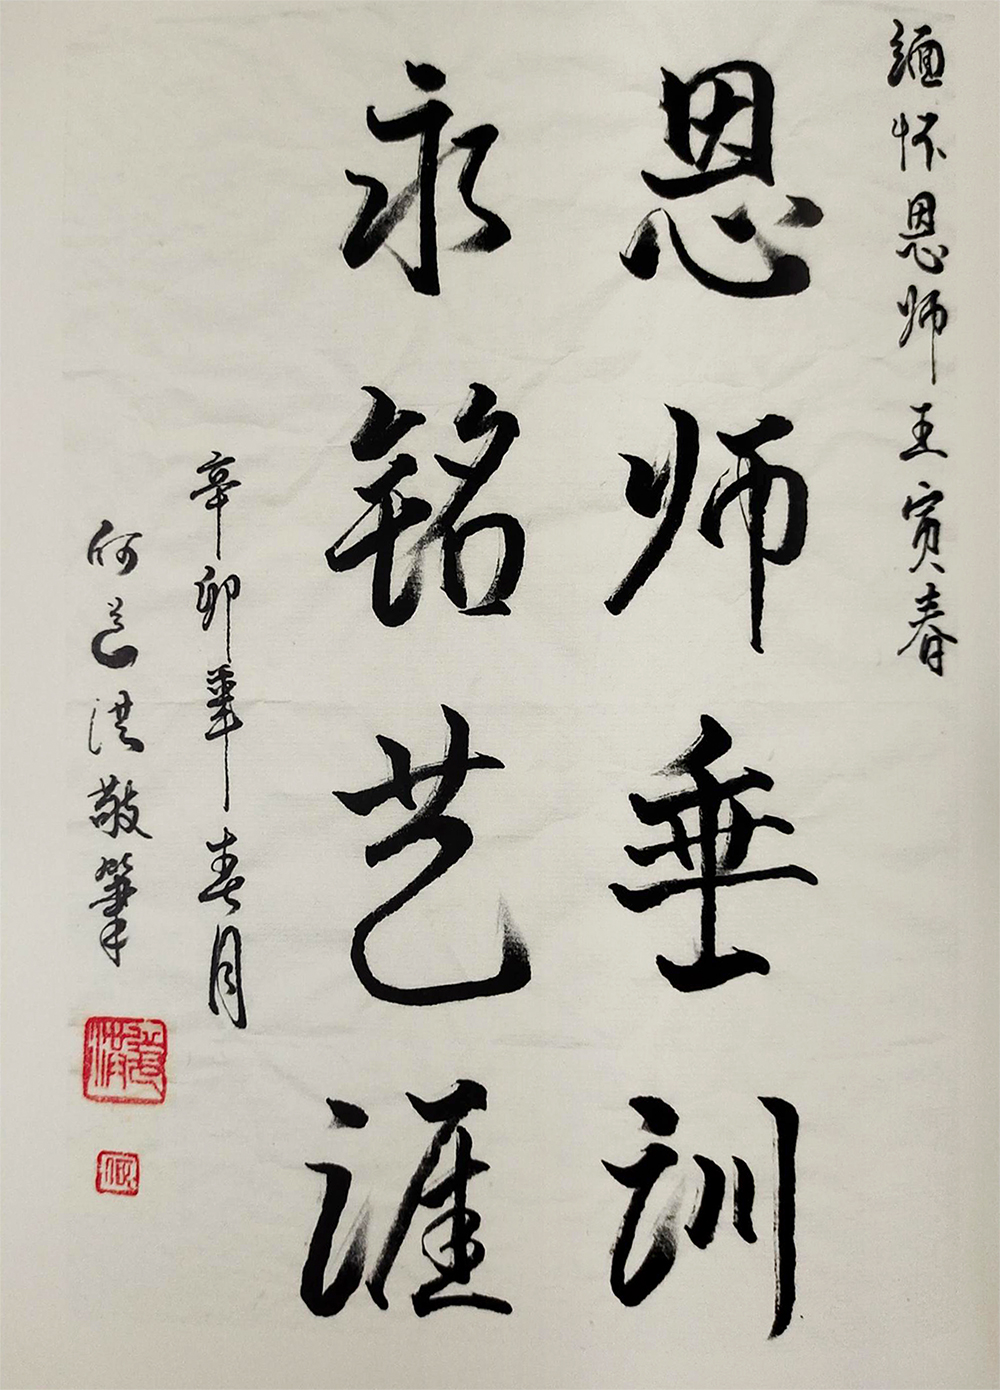 缅怀恩师王寅春
恩师垂训
永铭艺涯
辛卯年春月
何道洪敬筆